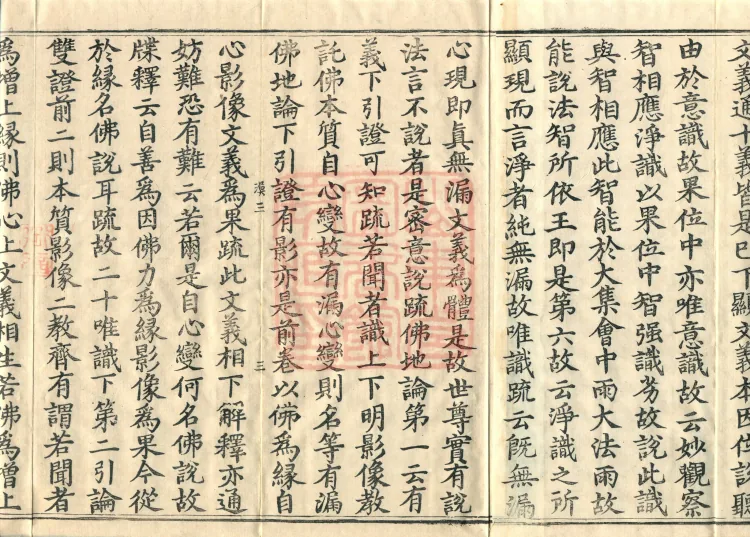 文義通十義皆是已下顯文義本因位說聽
由於意識故果位中亦唯意識故云妙觀察
智相應淨識以果位中智强識劣故說此識
與智相應此智能於大集會中雨大法雨故
能說法智所依王即是第六故云淨識之所
顯現而言淨者純無漏故唯識疏云旣無漏
心現即眞無漏文義爲體是故世尊實有說
法言不說者是密意說疏佛地論第一云有
義下引證可知疏若聞者識上下明影像教
託佛本質自心變故有漏心變則名等有漏
佛地論下引證有影亦是前卷以佛爲緣自
漠三 三
心影像文義爲果疏此文義相下解釋亦通
妨難恐有難云若爾是自心變何名佛說故
牒釋云自善爲因佛力爲緣影像爲果今從
於緣名佛說耳疏故二十唯識下第二引論
雙證前二則本質影像二教齊有謂若聞者
爲增上緣則佛心上文義相生若佛爲增上